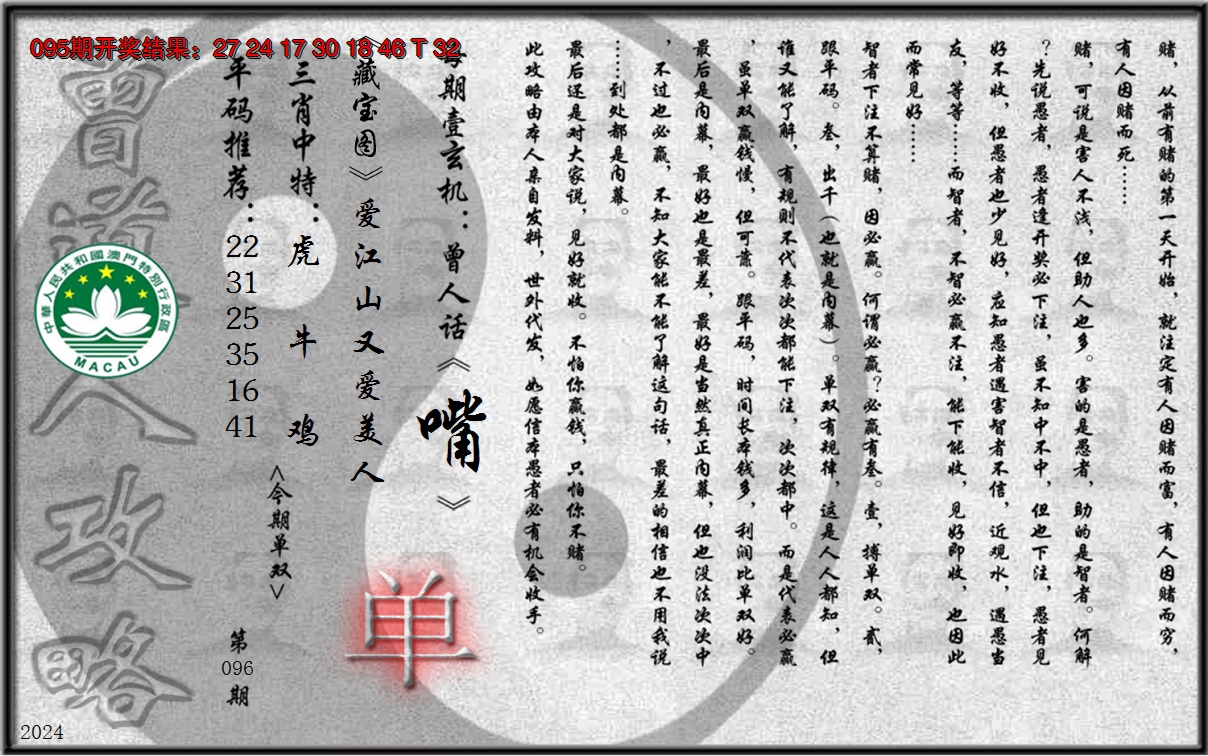 095期开奖结果：27 24 17 30 18 46 T 32
赌，从前有赌的第一天开始，就注定有人因赌而富，有人因赌而穷，
有人因赌而死……
赌，可说是害人不浅，但助人也多。害的是愚者，助的是智者。何解
？先说愚者，愚者逢开奖必下注，虽不知中不中，但也下注，愚者见
好不收，但愚者也少见好，应知愚者遇害智者不信，近观水，遇愚当
友，等等……而智者，不智必赢不注，能下能收，见好即收，也因此
而常见好……
智者下注不算赌，因必赢。何谓必赢？必赢有叁。壹，搏单双。贰，
跟平码。叁，出千（也就是内幕）。单双有规律，这是人人都知，但
谁又能了解，有规则不代表次次都能下注，次次都中。而是代表必赢
，虽单双赢钱慢，但可靠。跟平码，时间长本钱多，利润比单双好。
最后是内幕，最好也是最差，最好是当然真正内幕，但也没法次次中
，不过也必赢，不知大家能不能了解这句话，最差的相信也不用我说
……到处都是内幕。
最后还是对大家说，见好就收。不怕你赢钱，只怕你不赌。
此攻略由本人亲自发料，世外代发，如愿信本愚者必有机会收手。
每期壹玄机：曾人话《嘴》
《藏宝图》爱江山又爱美人
三肖中特：虎 牛 鸡
平码推荐：22 31 25 35 16 41
<今期单双>
单
第096期
曾道人攻略
中華人民共和國澳門特別行政區
MACAU
2024